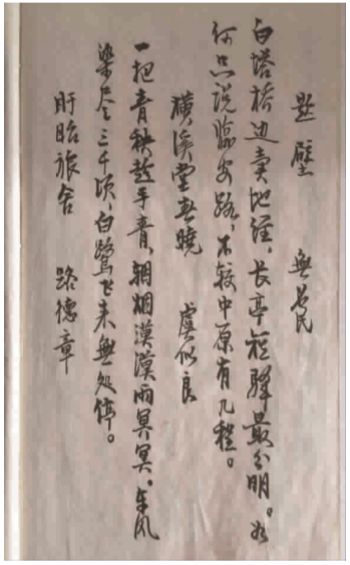 题壁 無名氏
白塔桥边卖地经，长亭短驿最分明。如
何只说临安路，不较中原有几程。
横溪堂春晓 虞似良
一把青秧趁手青，轻烟漠漠雨冥冥。东风
染尽三千顷，白鹭飞来無处停。
盱眙旅舍 路德章